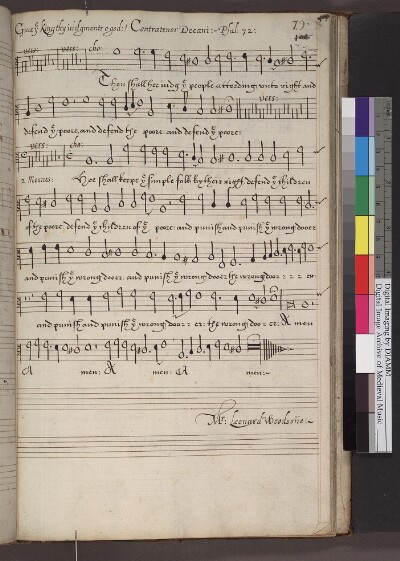 Giue yͤ king thy iudgments o god: / Contratenor Decani: ~ Psal: 72: 79
vers: vers: cho:
Then shall hee iudg yͤ people according vnto right and
vers:
defend yͤ poore, and defend the poore and defend yͤ poore:
vers: cho:
2 Meanes: Hee shall keepe yͤ simple folk by their right, defend yͤ children
of the poore, defend yͤ children of yͤ poore: and punish and punish yͤ wrong dooer
and punish yͤ wrong dooer: and punish yͤ wrong dooer the wrong door
and punish and punish yͤ wrong door er: the wrong doo er: A men
A men: A men: A men:
Mr: Leonard Woodsone: ~
Digital Imaging by DIAMM
Digital Image Archive of Medieval Music